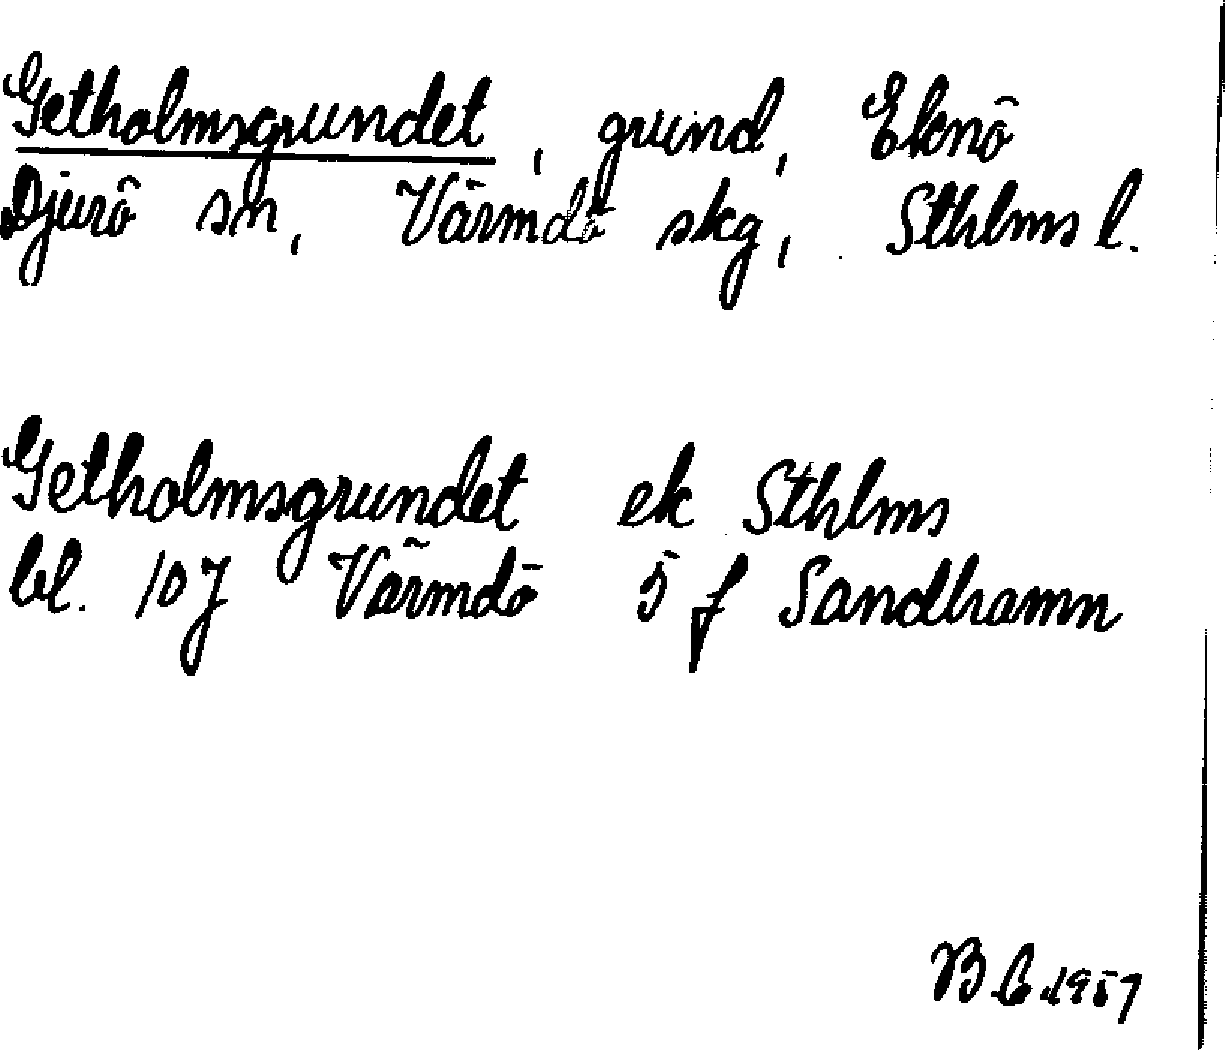 Getholmsgrundet, grund, Eknö
Djurö sn, Värmdö skg, Sthlms l.
Getholmsgrundet ek Sthlms
bl. 107 Värmdö 5 f Sandhamn
B C 1957